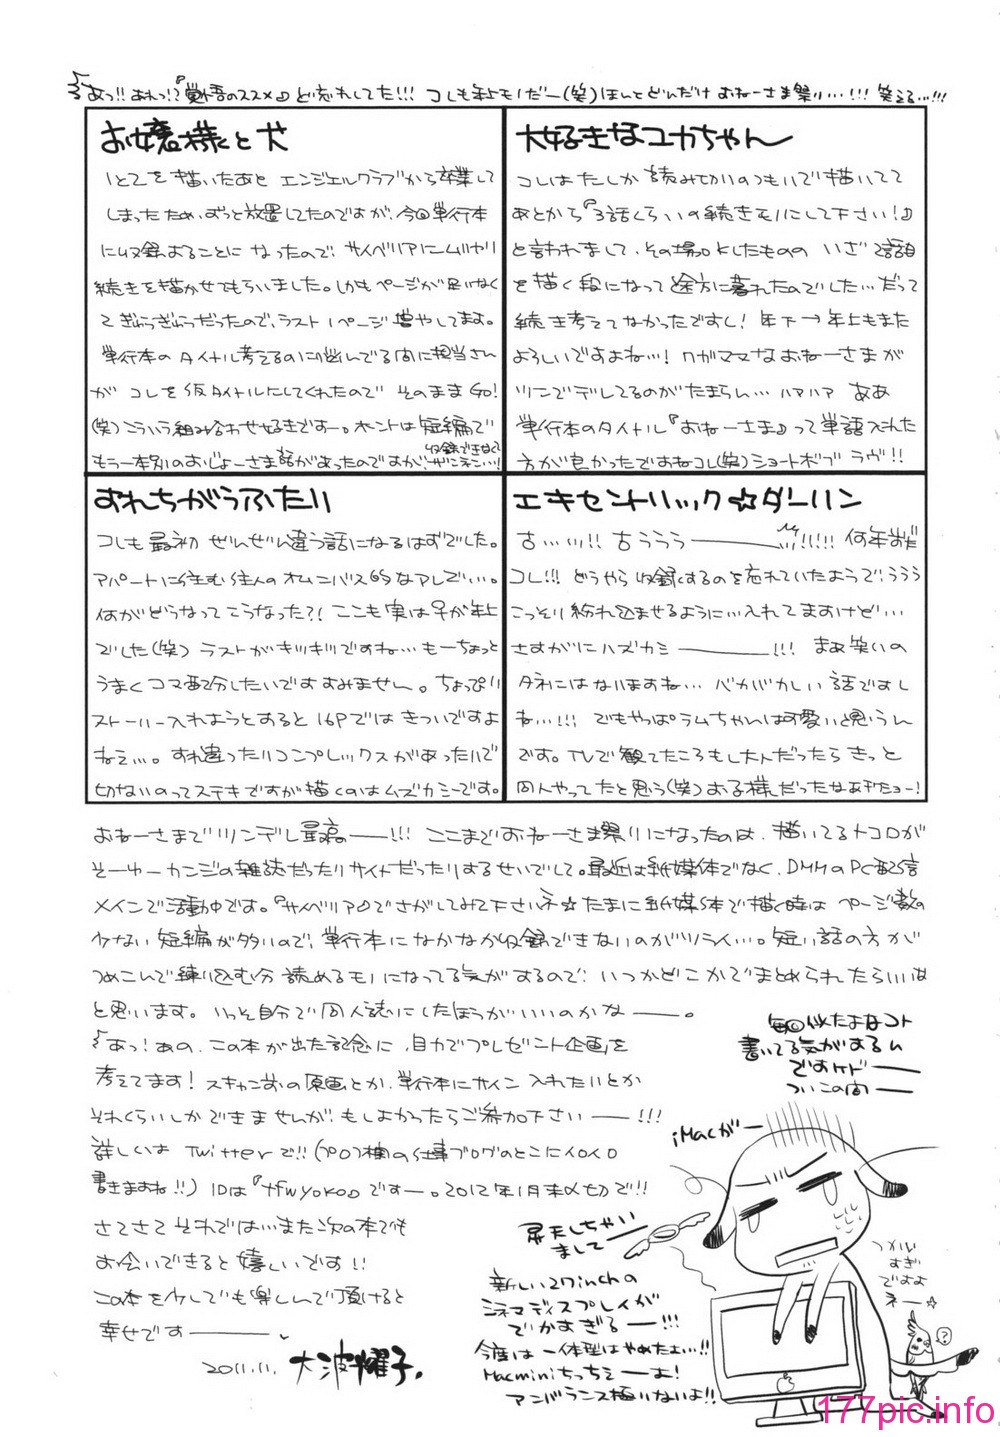 あっ!!あれっ!?『覚悟のススメ』ど忘れしてた!!! コレも年上モノだー(笑)ほんとどんだけおねーさま祭り…!!! 笑える…!!!
お嬢様と犬
1と2を描いたあと エンジェルクラブから卒業して
しまったため、ずっと放置してたのですが、今回単行本
に収録することになったので、サイベリアにムリヤリ
続きを描かせてもらいました。しかもページが足りなく
てぎゅうぎゅうだったので、ラスト1ページ増やしてます。
単行本のタイトル考えるのに悩んでる間に担当さん
が コレを仮タイトルにしてくれたので そのままGO!
(笑)こういう組み合わせ好きですー。ホントは短編で
もう一本別のおじょーさま話があったのですが、収録できなくてザンネン…!
大好きなユカちゃん
コレはたしか 読み切りのつもりで描いてて
あとから『3話くらいの続きモノにして下さい!』
と言われまして、その場OKしたものの いざ2話目
を描く段になって途方に暮れたのでした…だって
続き考えてなかったですし! 年下→年上もまた
よろしいですよね…! ワガママなおねーさまが
ツンでデレてるのがたまらん… ハァハァ ああ
単行本のタイトル『おねーさま』って単語入れた
方が良かったですねコレ(笑)ショートボブ ラヴ!!
すれちがうふたり
コレも最初 ぜんぜん違う話になるはずでした。
アパートに住む住人のオムニバス的なアレで…。
何がどうなってこうなった?! ここも実は♀が年上
でした(笑) ラストがキツキツですね…もーちょっと
うまくコマ配分したいですすみません。ちょっぴり
ストーリー入れようとすると16Pではきついですよ
ねぇ…。すれ違ったりコンプレックスがあったりで
切ないのってステキですが描くのはムズカシーです。
エキセントリック☆ダーリン
古…ッ!! 古ううう――!!!!! 何年前だ
コレ!!! どうやら収録するのを忘れていたようで、ううう
こっそり紛れ込ませるように…入れてますけど…
さすがにハズカシ――!!! まあ笑いの
タネにはなりますね… バカバカしい話ですし
ね…!!! でもやっぱラムちゃんは可愛いと思うん
です。TVで観てたころもし大人だったらきっと
同人やってたと思う(笑)
おねーさまでツンデレ最高――!!! ここまでおねーさま祭りになったのは、描いてるトコロが
そーゆーカンジの雑誌だったりサイトだったりするせいでして。最近は紙媒体でなく、DMMのPC配信
メインで活動中です。『サイベリア』でさがしてみて下さいネ☆たまに紙媒体で描く時は ページ数の
少ない短編が多いので、単行本になかなか収録できないのがツライ…。短い話の方が
つめこんで練り込む分 読めるモノになってる気がするので、いつかどこかでまとめられたらいいな
と思います。いっそ自分で同人誌にしたほうがいいのかな――。
あっ!あの、この本が出た記念に、自力でプレゼント企画を
考えてます! スキャン前の原画とか、単行本にサイン入れたいとか
それくらいしかできませんが、もしよかったらご参加下さい――!!!
詳しいは Twitterで!!(プロフ欄の仕事ブログのとこにイロイロ
書きますね!!) IDは『tfwyoko』ですー。2012年1月末〆切で!!
さてさて それでは…また次の本でも
お会いできると嬉しいです!!
この本を少しでも楽しんで頂けると
幸せです――
2011.11. 大波耀子。
毎回似たよなコト
書いてる気がするん
ですけドー
ついこの間―
iMacがー
昇天しちゃい
まして
新しい27inchの
シネマディスプレイが
でかすぎるー!!!
今度は一体型はやめたよ…!!
Macminiちっちぇーよ!
アンバランス極いないよ!!
つかい
すぎ
ですよ
ネー☆
?
177pic.info